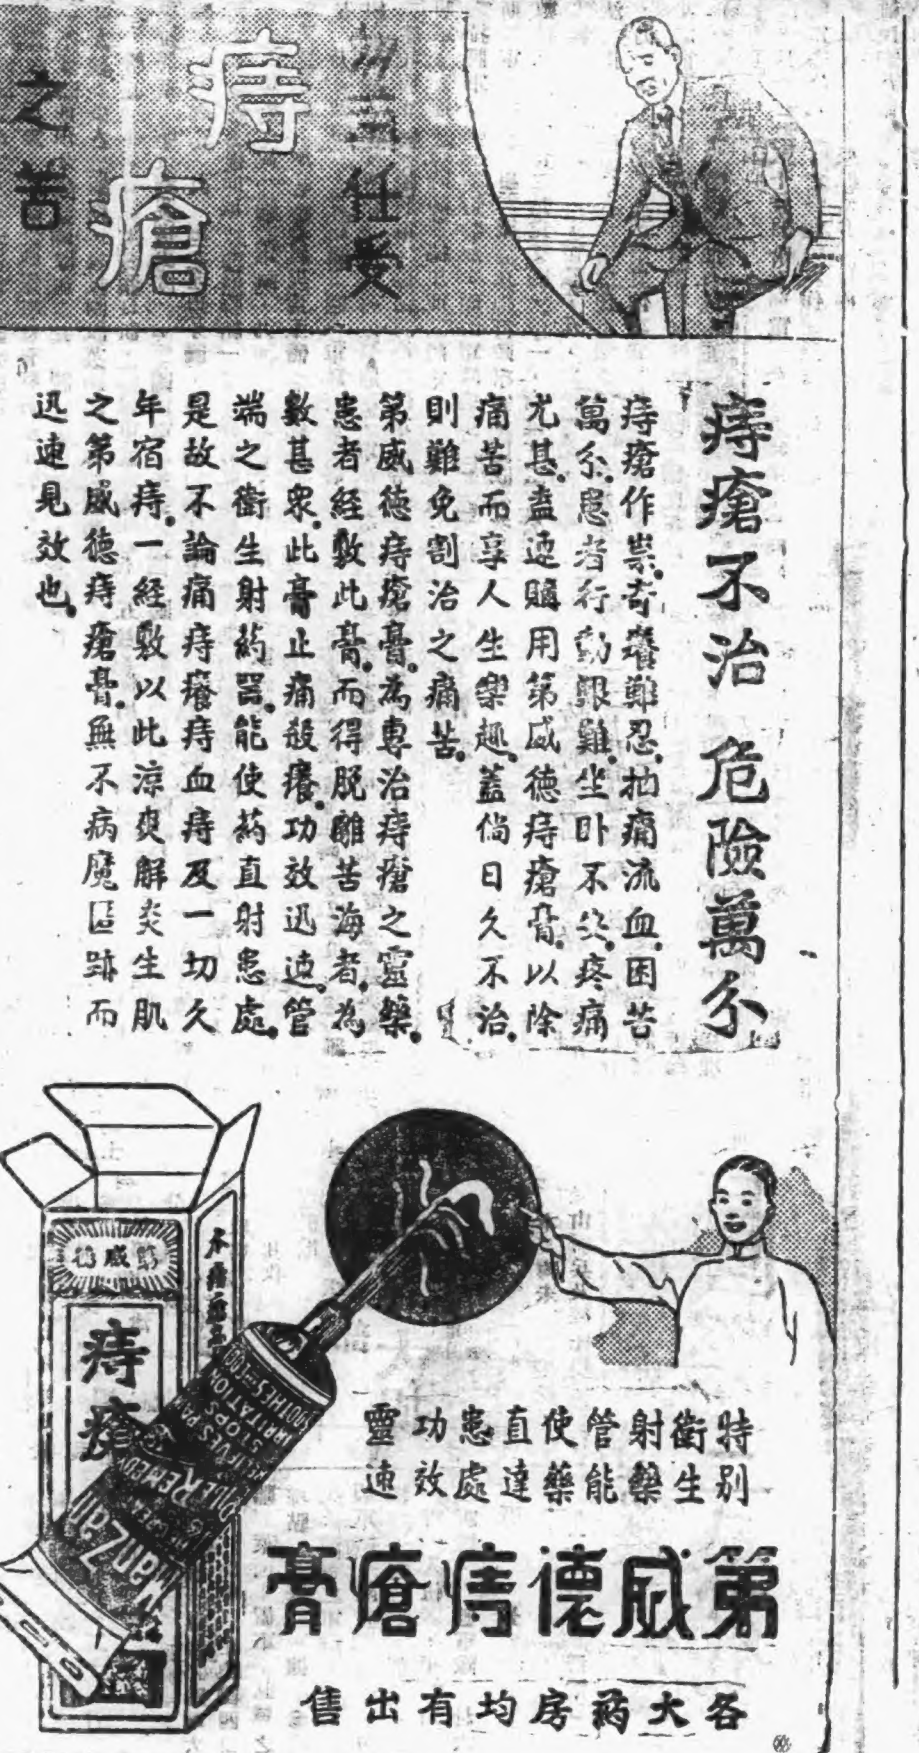 任受
痔瘡
之苦
痔瘡不治 危險萬分
痔瘡作祟.奇癢難忍.抽痛流血.困苦
萬分.患者行動艱難.坐卧不安.疼痛
尤甚.盍速購用第威德痔瘡膏.以除
痛苦而享人生樂趣.蓋倘日久不治.
則難免割治之痛苦.
第威德痔瘡膏.為專治痔瘡之靈藥.
患者經敷此膏.而得脫離苦海者.為
數甚衆.此膏止痛殺癢.功效迅速.管
端之衛生射葯器.能使葯直射患處.
是故不論痛痔癢痔血痔及一切久
年宿痔.一經敷以此涼爽解炎生肌
之第威德痔瘡膏.無不病魔匿跡而
迅速見效也.
第威德
痔瘡
ManZan
PILE REMEDY
特別衛生射藥管能使藥直達患處功效靈速
第威德痔瘡膏
各大葯房均有出售